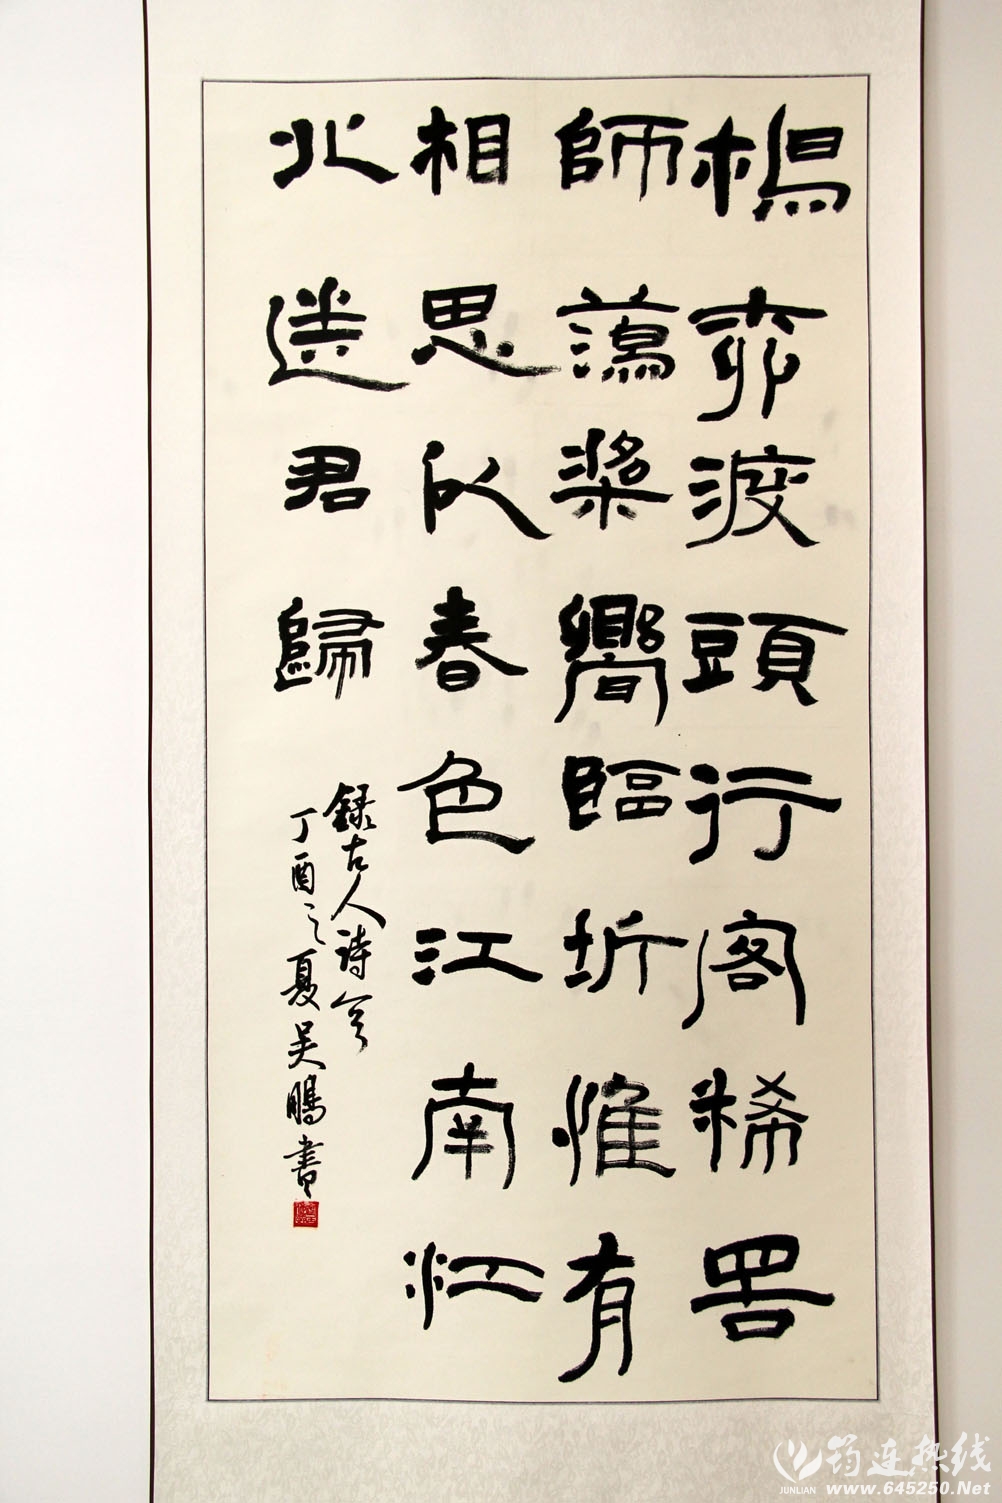 楊柳渡頭行客稀罟
師蕩槳嚮臨圻惟有
相思似春色江南江
北送君歸
録古人詩
丁酉之夏吴鵬書
筠连热线
JUNLIAN www.645250.Net